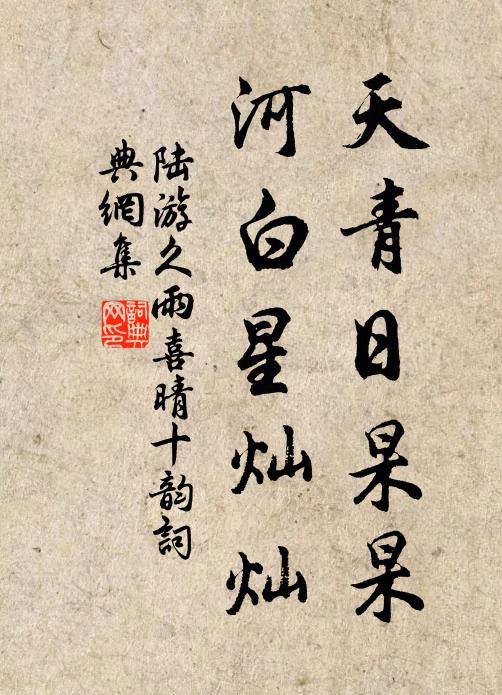 天青日杲杲
河白星灿灿
陆游久雨喜晴十韵詞
典網集
詞典网印